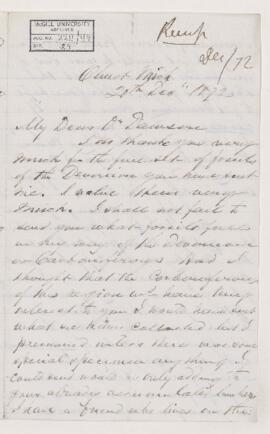 McGILL UNIVERSITY
ARCHIVES
ACC. NO.
REF. 59
Dec/72
Olivet Mich
20th Decr 1872
My Dear Dr Dawson
I thank you very
much for the fine set of fossils
of the Devonian you have sent
me. I value them very
much. I shall not fail to
send you what fossils
in the way of the Devonian
or Carboniferous Had I
thought that the Carboniferous
of this region wd have been
interest to you I would have sent
what we have collected but I
presumed unless there was some
special specimen anything I
could send would only adding to
your already accumulated lumber
I have a friend who lives on the